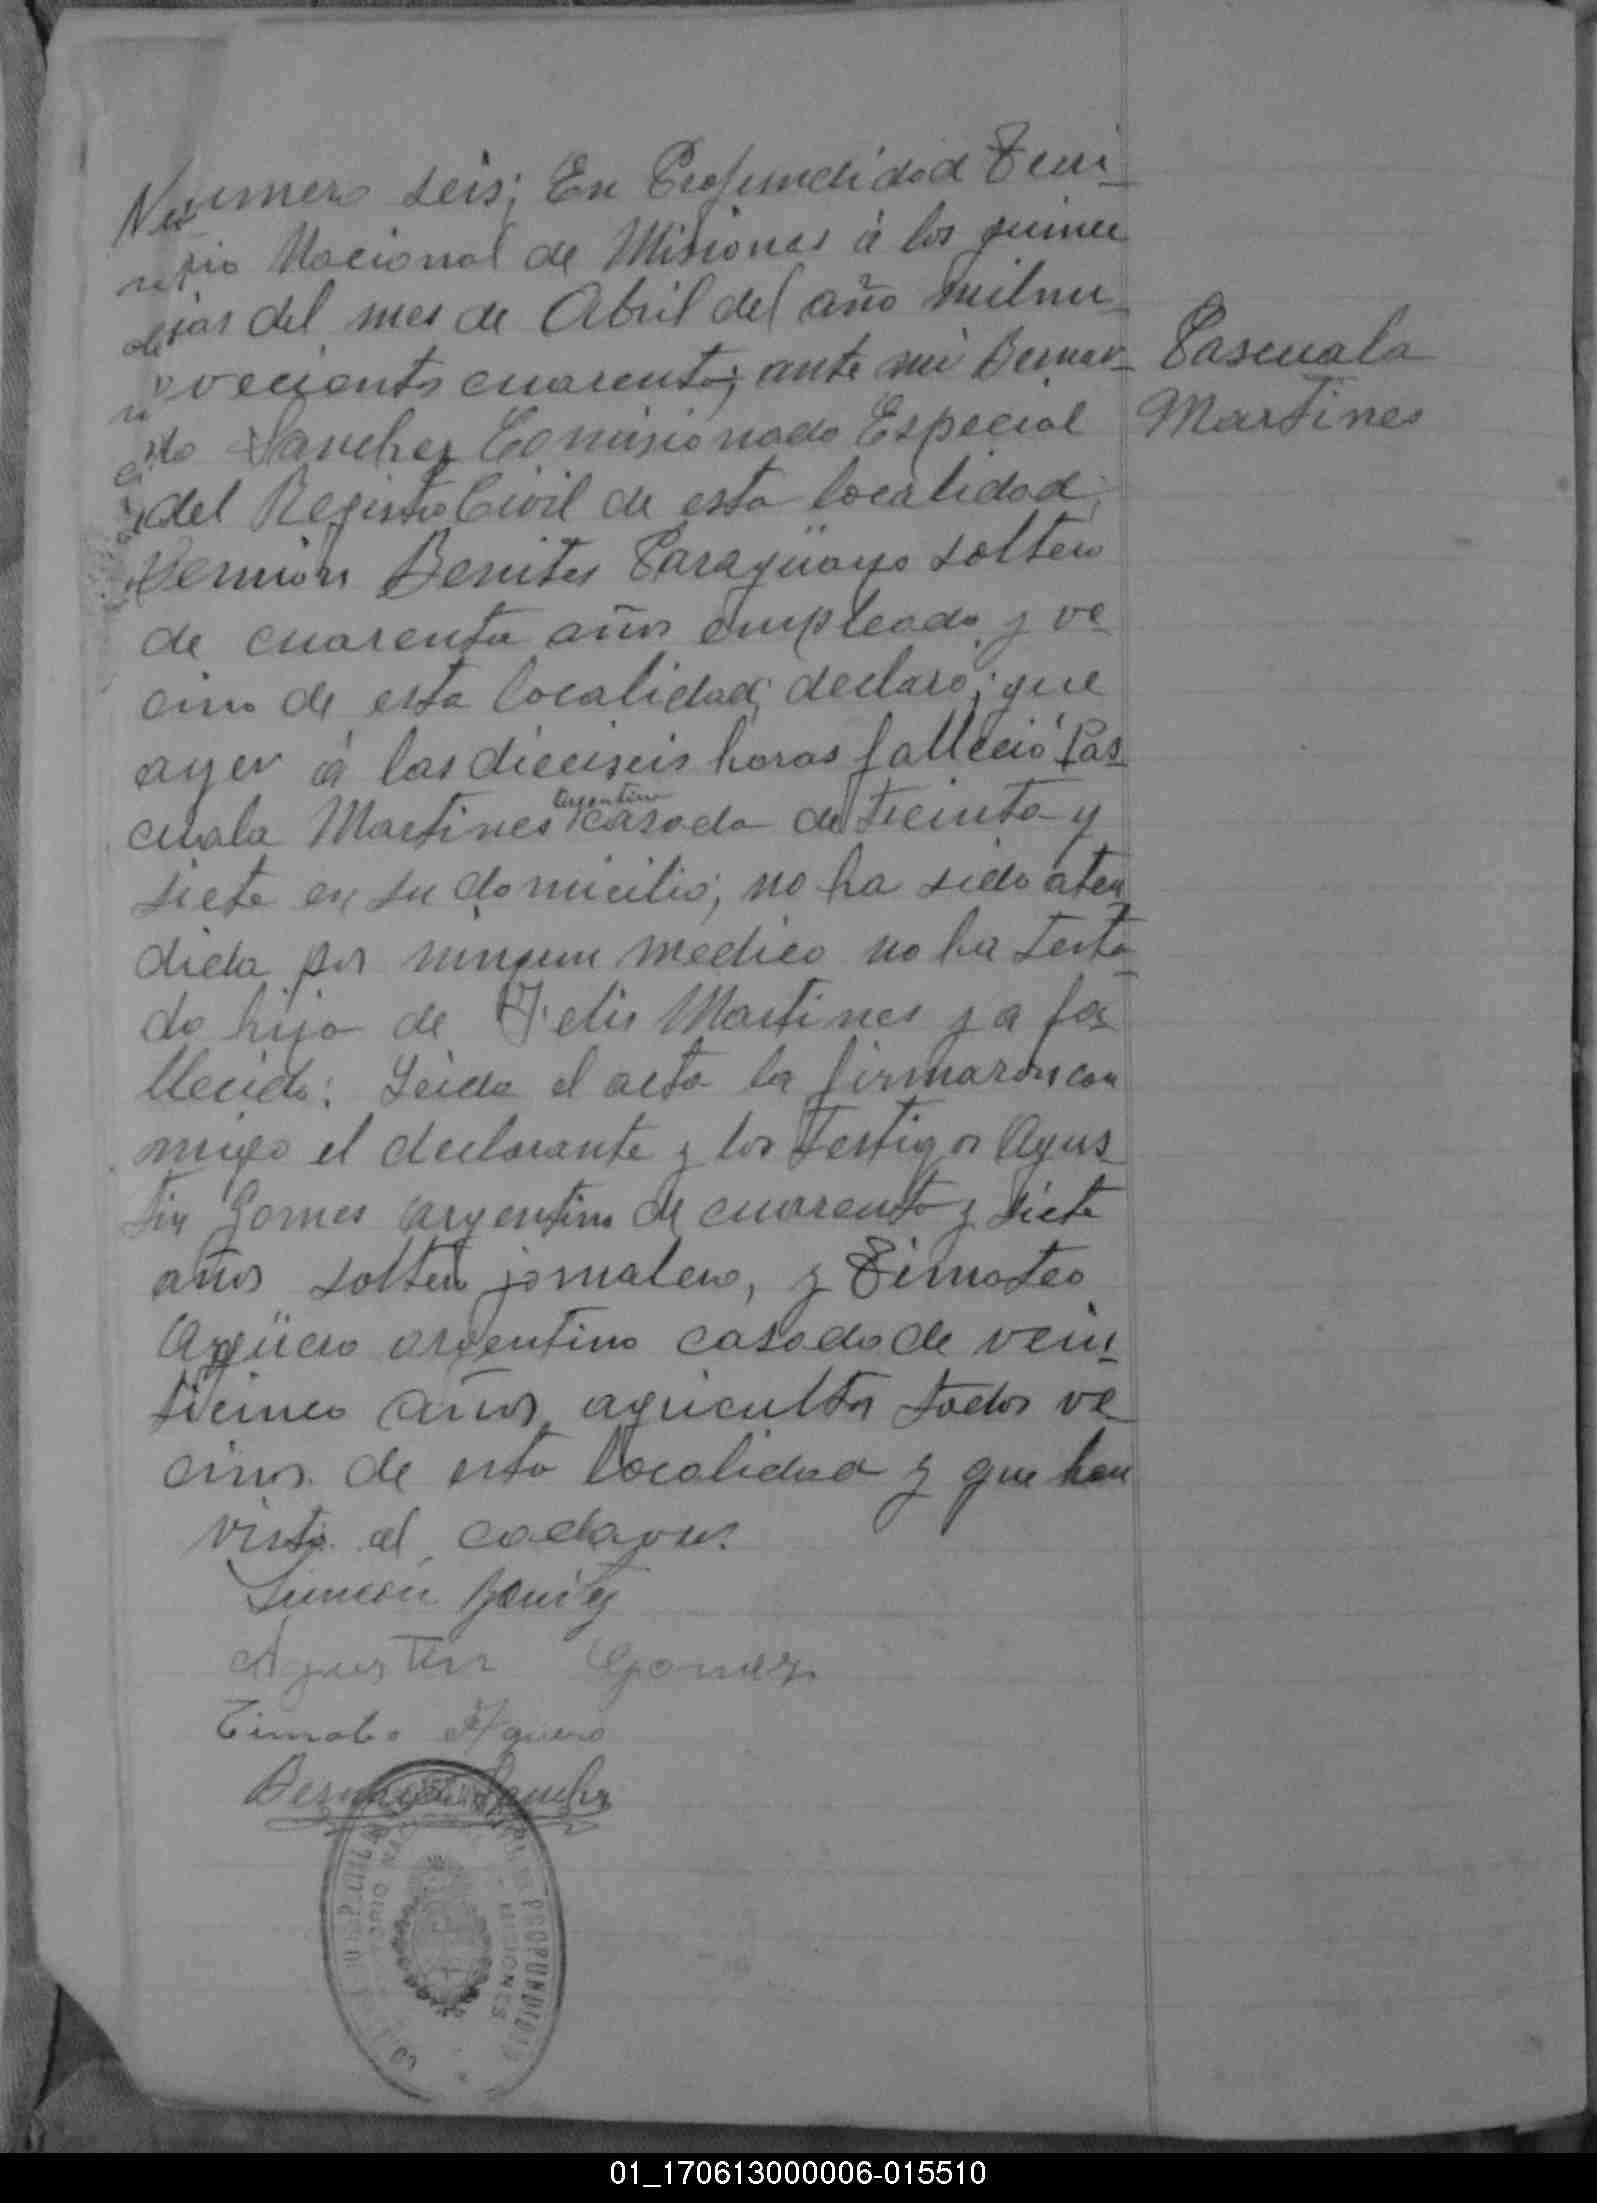 Numero seis; En Profundidad Terri_
torio Nacional de Misiones á los quince
dias del mes de Abril del año milnu_
vecientos cuarenta; ante mi Bernar_
do Sanchez Comisionado Especial
del Registro Civil de esta localidad;
Benites Paragüayo soltero
de cuarenta años empleado y ve
cino de esta localidad; declaró; que
ayer á las dieciseis horas falleció Pas_
cuala Martines Argentina casada de treinta y
siete en su domicilio; no ha sido aten
dida por ningun medico no ha testa_
do hija de Felis Martines ya fa_
llecido: Leida el acta la firmaron con
migo el declarante y los testigos Agus_
tin Gomes argentino de cuarenta y siete
años soltero jornalero, y Timoteo
Agüero argentino casado de vein_
ticinco años, agricultor todos ve_
cinos de esta localidad y que han
visto al cadaver.
Simeón Benitez
Agustin Gomez
Timoteo Aguero
Bernardo Sanchez
Pascuala
Martines
PROFUNDIDAD
MISIONES
01_170613000006-015510